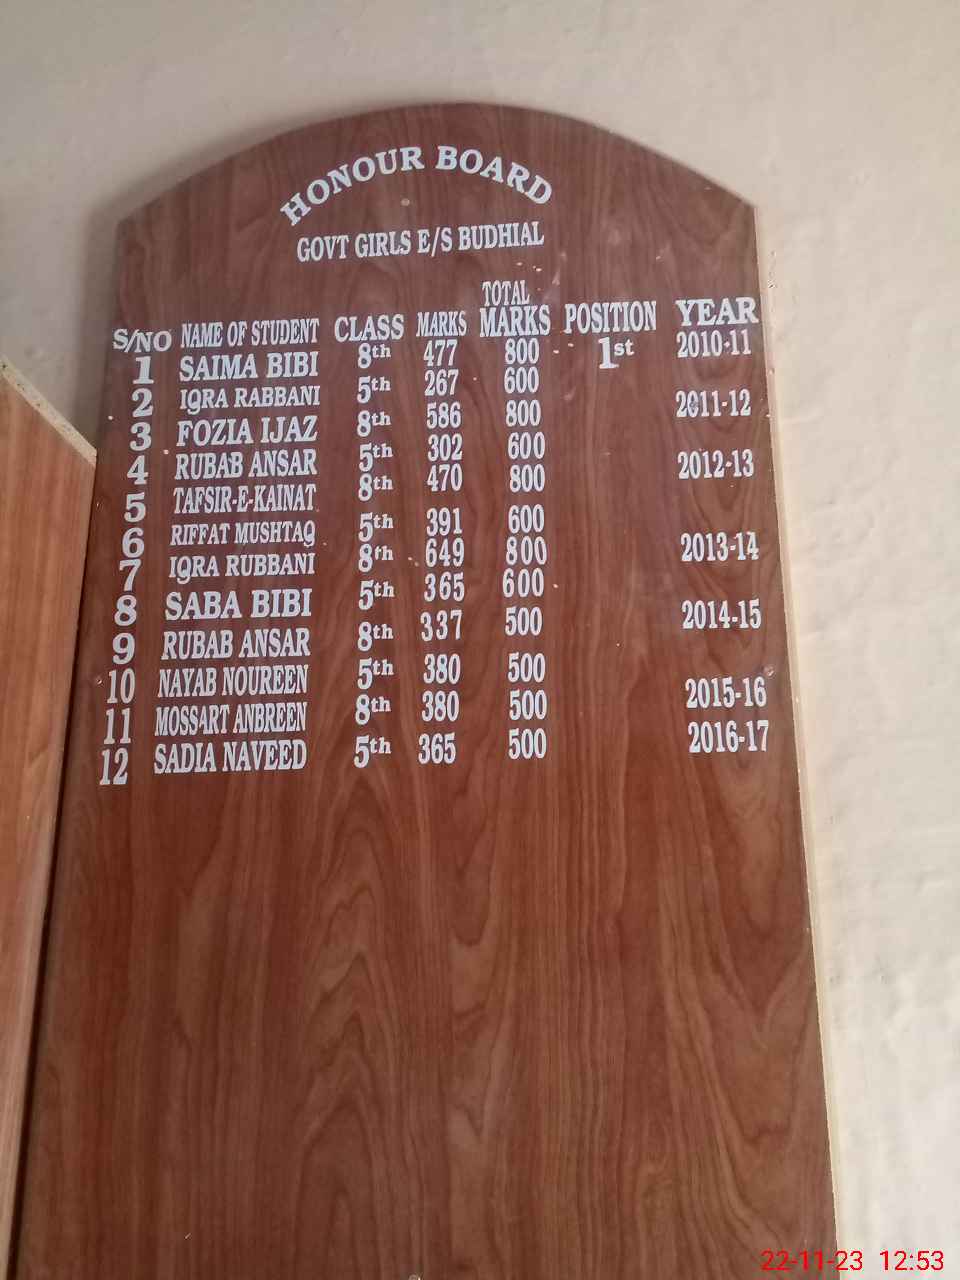 HONOUR BOARD
GOVT GIRLS E/S BUDHIAL
S/NO NAME OF STUDENT CLASS MARKS TOTAL MARKS POSITION YEAR
1 SAIMA BIBI 8th 477 800 1st 2010-11
2 IQRA RABBANI 5th 267 600
3 FOZIA IJAZ 8th 586 800 2011-12
4 RUBAB ANSAR 5th 302 600
5 TAFSIR-E-KAINAT 8th 470 800 2012-13
6 RIFFAT MUSHTAQ 5th 391 600
7 IQRA RUBBANI 8th 649 800 2013-14
8 SABA BIBI 5th 365 600
9 RUBAB ANSAR 8th 337 500 2014-15
10 NAYAB NOUREEN 5th 380 500
11 MOSSART ANBREEN 8th 380 500 2015-16
12 SADIA NAVEED 5th 365 500 2016-17
22-11-23 12:53